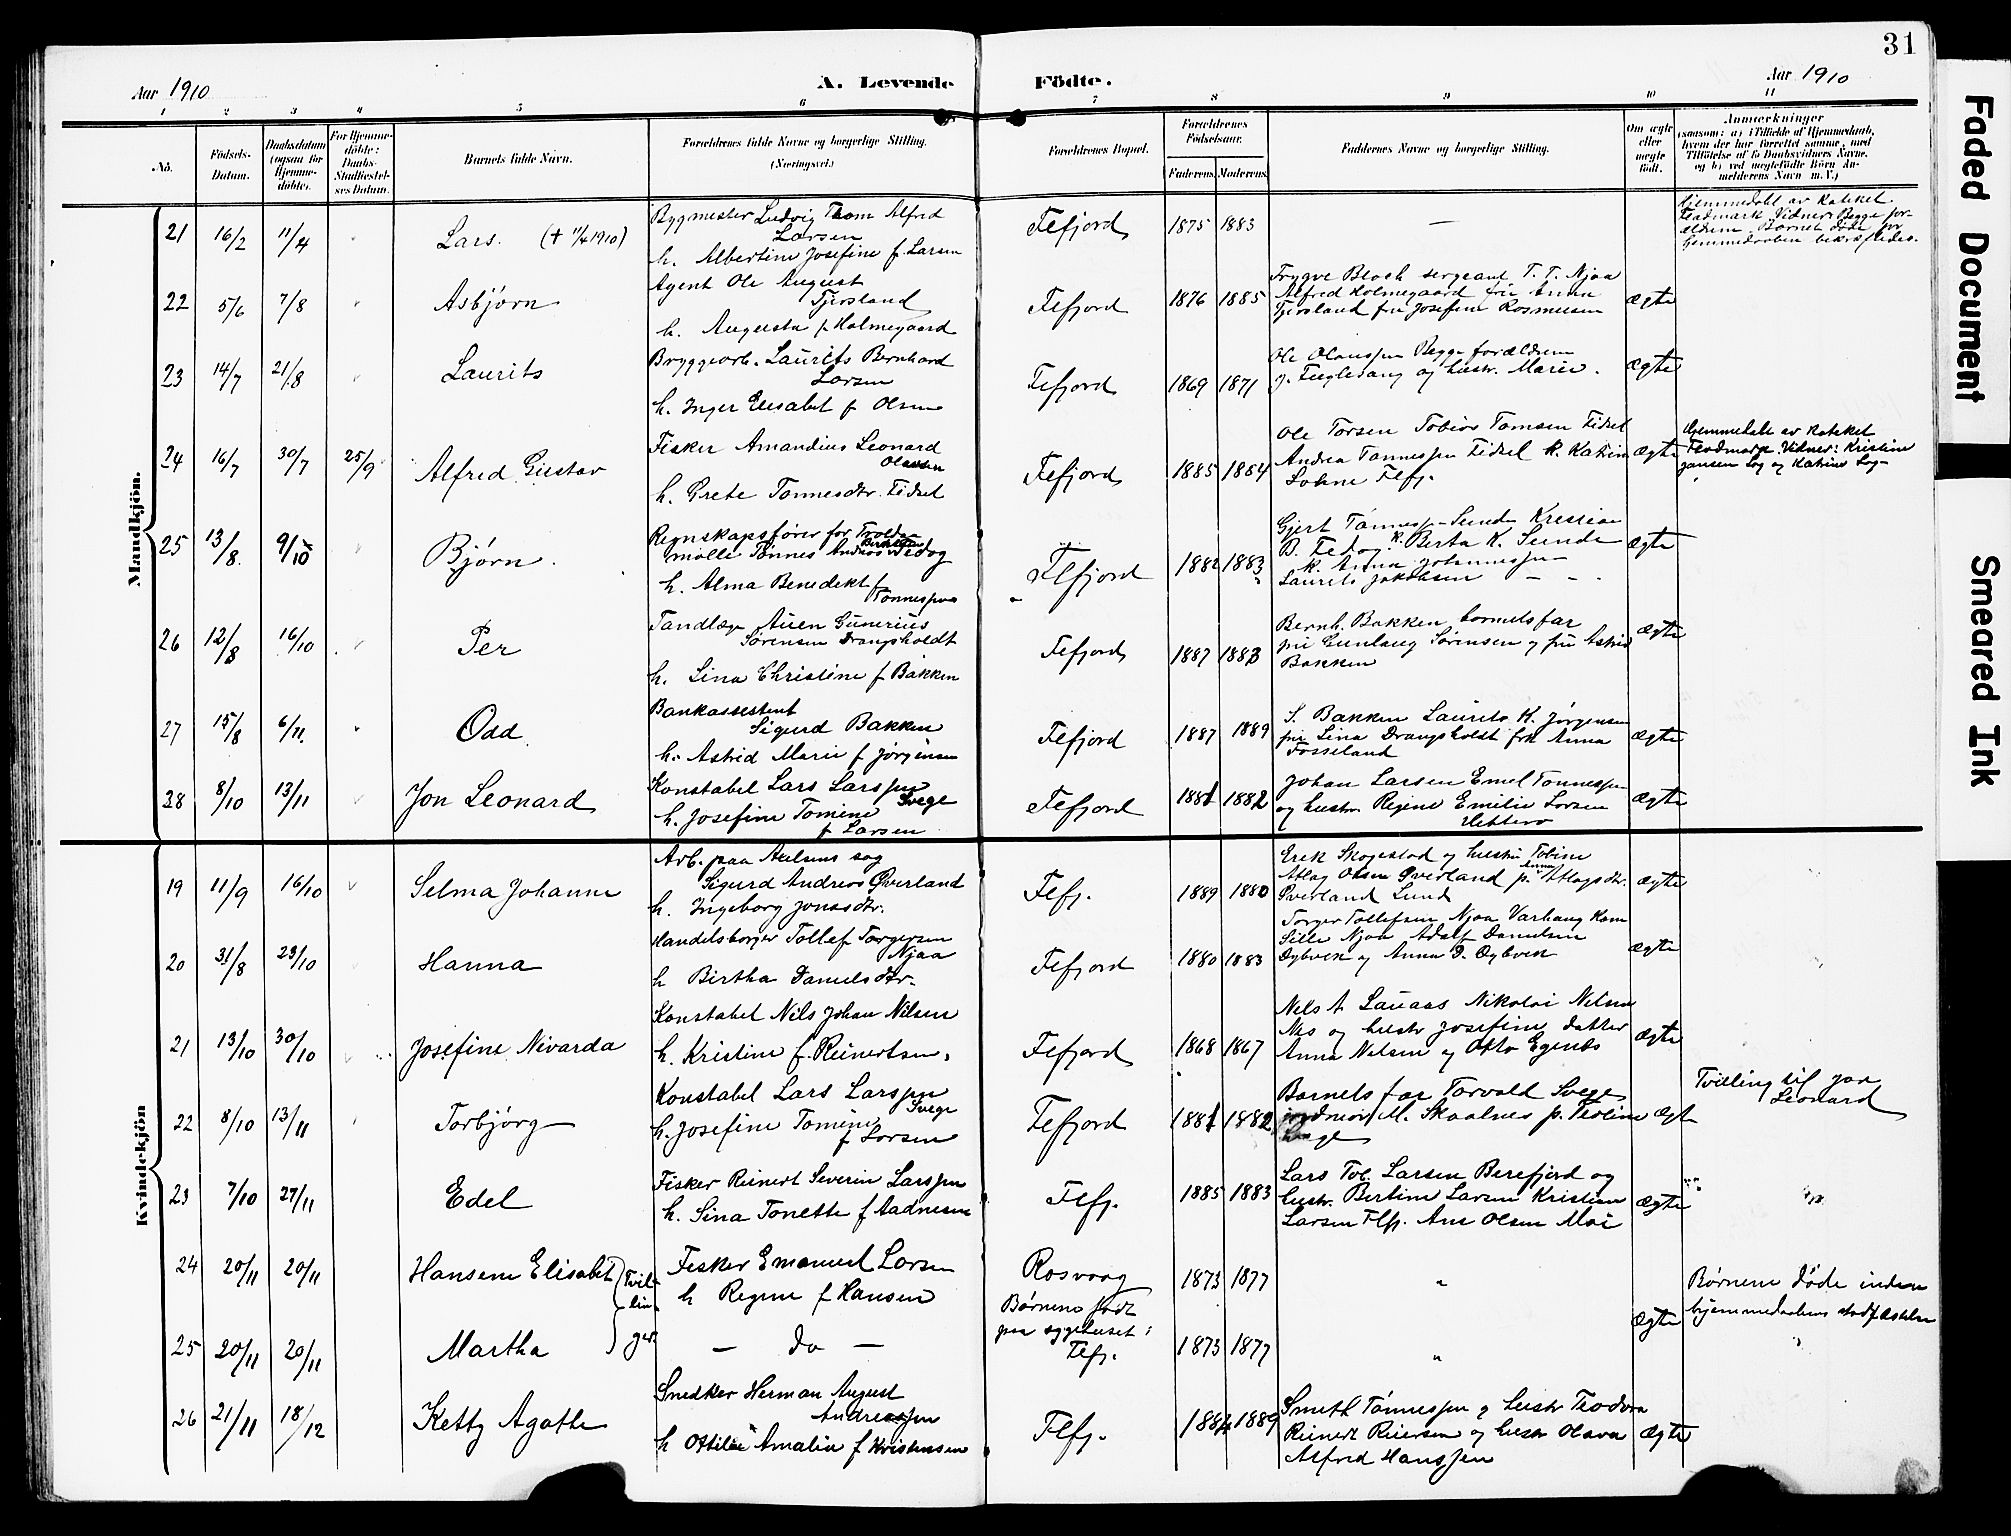 31
Aar 1910
A. Levende Födte.
Aar 1910
1 2 3 4 5 6 7 8 9 10 11
No.
Födsels-
Datum.
Daabsdatum
(ogsaa for
Hjemme-
döbte).
For Hjemme-
döbte:
Daabs-
Stadfæstel-
ses Datum.
Barnets fulde Navn.
Forældrenes fulde Navne og borgerlige Stilling.
(Næringsvei.)
Forældrenes Bopæl.
Forældrenes
Födselsaar.
Faderens. Moderens.
Faddernes Navne og borgerlige Stilling.
Om ægte
eller
uægte
født.
Anmærkninger
(saasom: a) i Tilfælde af Hjemmedaab,
hvem der har forrettet samme, med
Tilföielse af to Daabsvidners Navne,
og b) ved uegtefödte Börn An-
melderens Navn m. V.)
Mandkjön.
21 16/2 11/4 Lars. († 11/4 1910)
Bygmester Ludvig Thom Alfred
Larsen
h. Albertine Josefine f. Larsen
Flefjord 1875 1883 —
Hjemmedøbt av Kateket
Fladmark Vidner: Begge for-
ældrene. Barnet døde før
hjemmedaaben bekræftedes.
22 5/6 7/8 Asbjørn
Agent Ole August
Tjersland
h. Augusta f Holmegaard
Flefjord 1876 1885
Trygve Bloch sergeant T. T. Njaa
Alfred Holmegaard fru Anna
Tjersland fru Josefine Rosmusen
ægte
23 14/7 21/8 Laurits
Bryggearb. Laurits Bernhard
Larsen
h. Inger Elisabet f Olsen
Flefjord 1869 1871
Ole Olaussen Begge forældrene
J. Fuglesang og hustr. Marie.
ægte
24 16/7 30/7 25/9 Alfred Gustav
Fisker Amandius Leonard
Olaussen
h. Grete Tonnesdtr. Fidsel
Flefjord 1885 1884
Ole Torsen Tobias Tomsen Fidsel
Andrea Tonnessen Fidsel k. Katrine
Lohne Flefj.
ægte
Hjemmedøbt av Kateket
Fladmark Vidner: Kristine
Jansen Log og Katrine Log
25 13/8. 9/10 Bjørn.
Regnskapsfører for Trælde
mølle Tønnes Andreas Fedog
h. Alma Benedikt f
Tonnessen
Flefjord 1882 1883
Gjert Tønness. Sunde Kristian
B. Fedog. k. Berta K. Sunde
k. Anna Johannessen
Laurits Jakobsen — —
ægte
26 12/8 16/10 Per
Tandlæge Auen Gunerius
Sørensen Drangsholdt
h. Lina Christine f Bakken
Flefjord 1887 1883
Bernh. Bakken barnets far
fru Gunlaug Sørensen og fru Astrid
Bakken
ægte
27 15/8 6/11. Odd
Bankassestent
Sigurd Bakken
h. Astrid Marie f Jørgensen
Flefjord 1887 1889
S. Bakken Laurits K. Jørgensen
fru Lina Drangsholdt frk Anna
Fosseland
ægte
28 8/10 13/11 Jon Leonard
Konstabel Lars Larssen
Svege
h. Josefine Tomine
f Larsen
Flefjord 1881 1882
Johan Larsen Emel Tonnessen
og hustr. Regine Emilie Larsen
Hittero
ægte
Kvindekjön
19 11/9 16/10 Selma Johanne
Arb. paa Axelsens sag
Sigurd Andreas Øverland
h. Ingeborg Jonasdtr.
Flefj. 1889 1880
Erek Skogestad og hustru Tobine
Atlag Olsen Øverland p. Anna Atlagsdtr.
Øverland Lund
ægte
20 31/8 23/10 Hanna
Handelsborger Tollef Torgersen
Njaa
h Birtha Danielsdtr.
Flefjord 1880 1883
Torger Tollefsen Njaa Varhaug Kam
Sille Njaa Adolf Danielsen
Ogbvek og Anna D. Ogbvek
ægte
21 13/10 30/10 Josefine Nivarda
Konstabel Nils Johan Nilsen
h. Kristine f. Reinertsen.
Flefjord 1868 1867
Nels A Lauaas Nikolai Nelsen
Nes og hustr Josefine datter
Anna Nelsen og Otto Egenes
ægte
22 8/10 13/11 Torbjørg
Konstabel Lars Larssen
Svege
h. Josefine Tomine
f Larsen
Flefjord 1881 1882
Barnets far Torvald Svege
jordmor M. Skaalnes p. Teoline
Svege
ægt
Tvilling til Jon
Leonard
23 7/10 27/11 Edel
Fisker Reinert Severin Larssen
h. Sina Tonette f Aadnesen
Flefj. 1885 1883
Lars Tob. Larsen Berefjord og
hustr. Bertine Larsen Kristian
Larsen Flfj. Ane Olsen Moi
ægte
24 20/11 20/11 Hansene Elisabet
Tvil-
lin-
ger.
Fisker Emanuel Larsen
h Regine f Hansen
Rosvoog 1873 1877 "
Børnene født
paa sygehuset i
Flefj.
Børnene døde inden
hjemmedaabens stadfæstelse
25 20/11 20/11 Martha
— do — 1873 1877 "
ægte
26 21/11 18/12 Ketty Agathe
Snedker Herman August
Andreassen
h Ottilie Amalie f Kristensen
Flfj. 1884 1889
Smeth Tønnessen og hustr Teodora
Reinert Reiersen og hustr Olava
Alfred Hanssen
ægte
Faded Document
Smeared Ink